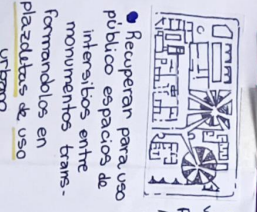 Recuperar para uso
público espacios de
intersibos entre
monumentos trans-
formandolos en
plazoletas de uso
urbano